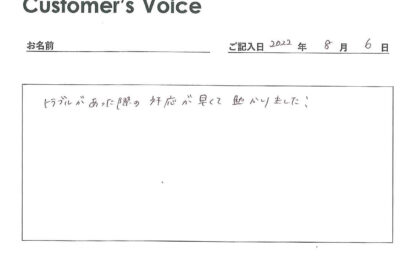 Customer's Voice
お名前
ご記入日 2022 年 8 月 6 日
トラブルがあった際の対応が早くて助かりました!